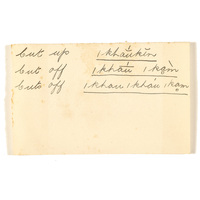 cut up ı khaukin
cut off ı khau ı kam
cuts off ı khau ı khau ı kam